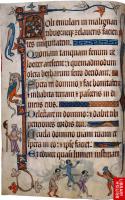 Noli emulari in malignan
tibus neque zelaueris facien
tes iniquitatem
Quoniam tamquam fenum
uelociter arescent et quemadmodum
olera herbarum cito decident
Spera in domino et fac bonitatem
et inhabita terram et pasceris in
diuiciis eius
Delectare in domino et dabit tibi
peticiones cordis tui
Reuela domino uiam tuam et
spera in eo et ipse faciet
Et educet quasi lumen iusticiam